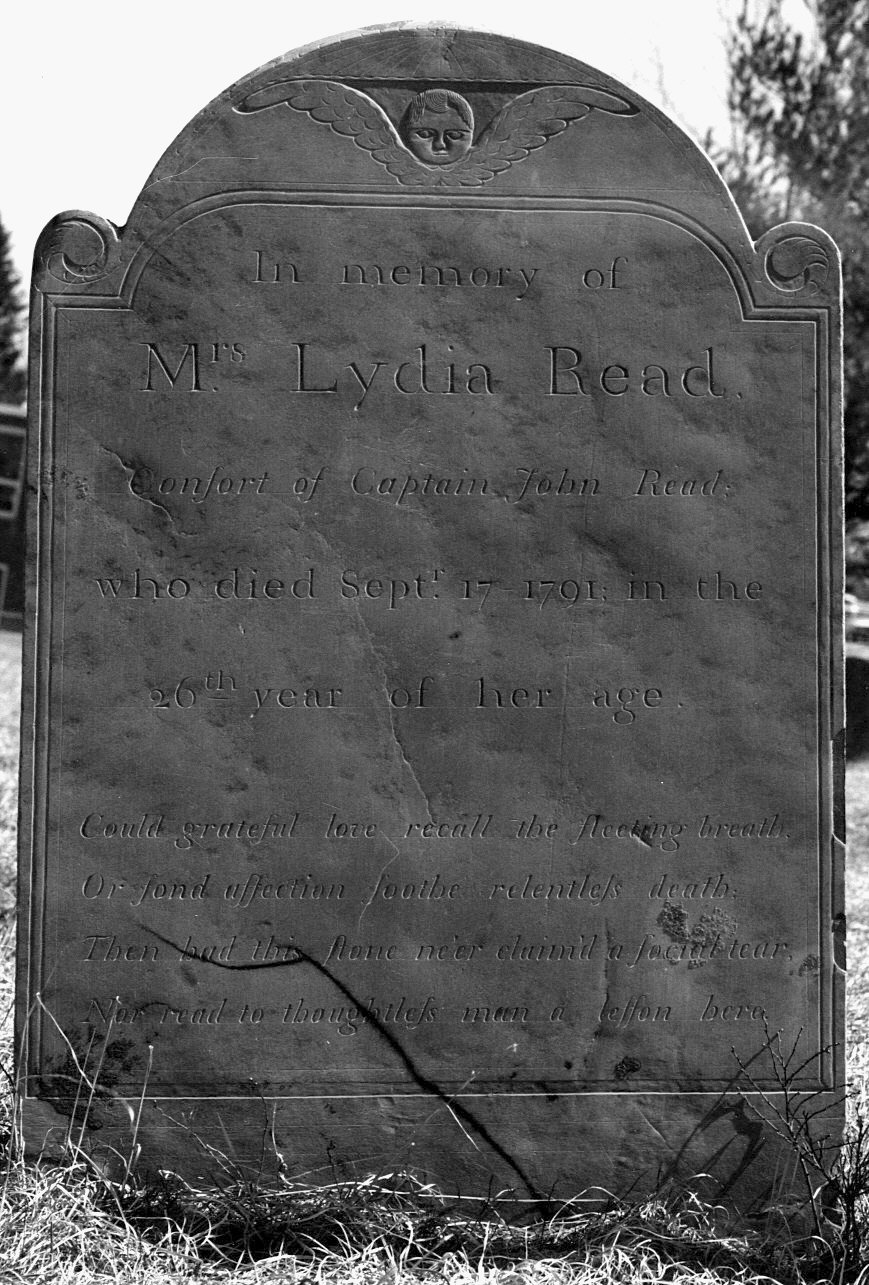 In memory of
Mrs. Lydia Read.
Conſort of Captain John Read;
who died Septr. 17-1791; in the
26th year of her age.
Could grateful love recall the fleeting breath,
Or fond affection ſoothe relentleſs death;
Then had this ſtone ne'er claim'd a ſocial tear,
Nor read to thoughtleſs man a leſſon here.